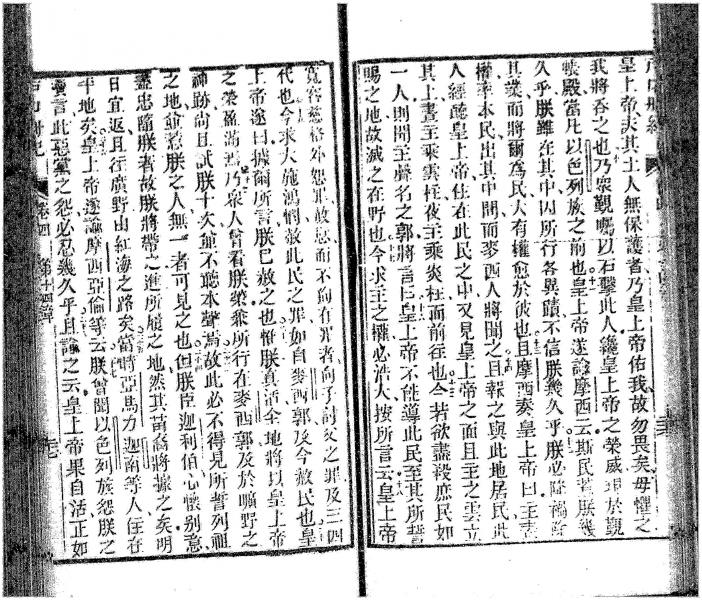 皇上帝夫其土人無保護者乃皇上帝佑我故勿畏矣毋懼之
我將吞之也乃眾觀囑以石擊此人纔皇上帝之榮威現於觀
帳殿當凡以色列族之前也皇上帝遂諭摩西云斯民惹朕幾
久乎朕雖在其中因所行各異蹟不信朕幾久乎朕必降禍除
其業而將爾為民大有權愈於彼也且摩西奏皇上帝曰主素
權率本民出其中間而麥西人將聞之且報之與此地居民此
人經聽皇上帝住在此民之中又見皇上帝之面且主之雲立
其上晝主乘雲柱夜主乘炎柱而前往也今若欲盡殺庶民如
一人則聞主聲名之郭將言曰皇上帝不能導此民至其所誓
賜之地故滅之在野也今求主之權必浩大按所言云皇上帝
寬容慈格外恕罪故惡而不狥在罪者向子討父之罪及三四
代也今求大施鴻憫赦此民之罪如自麥西郭及今赦民也皇
上帝遂曰據爾所言朕已赦之也惟朕真活全地將以皇上帝
之榮盈滿焉乃眾人曾看朕榮乘所行在麥西郭及於曠野之
神跡尚且試朕十次並不聽本聲焉故此必不得見所誓列祖
之地愈惹朕之人無一者可見之也但朕臣迦利伯心懷別意
盡忠隨朕者故朕將帶之進所履之地然其苗裔將據之矣明
日宜返且行曠野由紅海之路矣當時亞馬力迦南等人住在
平地矣皇上帝遂諭摩西亞倫等云朕曾聞以色列族怨朕之
言此惡黨之怨必忍幾久乎且諭之云皇上帝果自活正如
卷四 第十四章